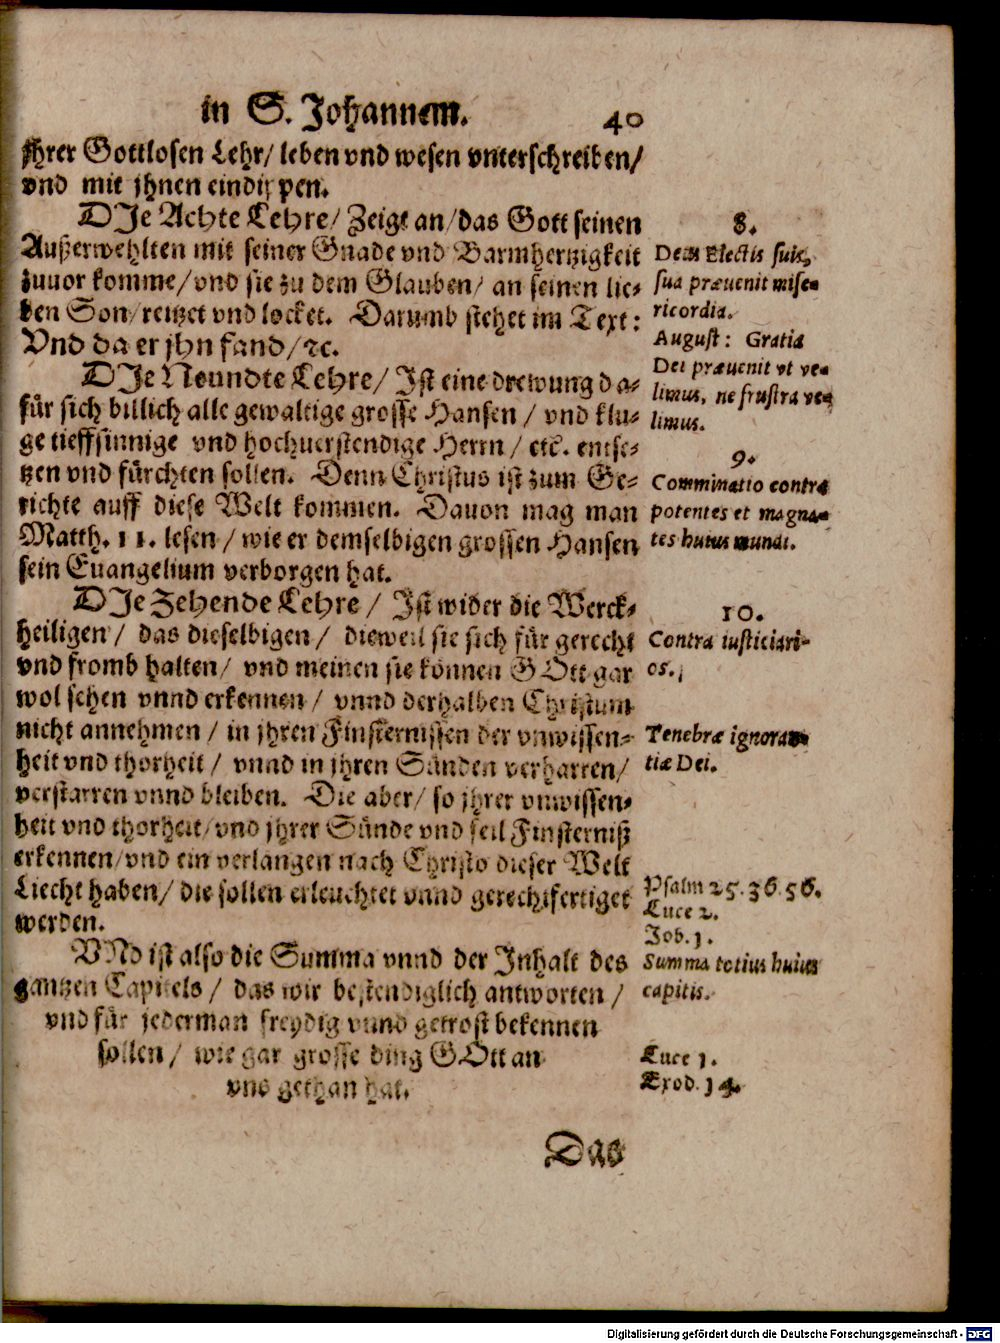 in S. Johannem. 40
jhrer Gottlosen Lehr/ leben vnd wesen vnterschreiben/
vnd mit jhnen eindippen.
DIe Achte Lehre/ Zeigt an/ das Gott seinen
Außerwehlten mit seiner Gnade vnd Barmhertzigkeit
zuuor komme/ vnd sie zu dem Glauben/ an seinen lie-
ben Son/ reitzet vnd locket. Darumb stehet im Text:
Vnd da er jhn fand/ ꝛc.
DIe Neundte Lehre/ Ist eine drewung da-
für sich billich alle gewaltige grosse Hansen/ vnd klu-
ge tieffsinnige vnd hochuerstendige Herrn/ etc. entse-
tzen vnd fürchten sollen. Denn Christus ist zum Ge-
richte auff diese Welt kommen. Dauon mag man
Matth. 11. lesen/ wie er demselbigen grossen Hansen
sein Euangelium verborgen hat.
DIe Zehende Lehre/ Ist wider die Werck-
heiligen/ das dieselbigen/ dieweil sie sich für gerecht
vnd fromb halten/ vnd meinen sie können GOtt gar
wol sehen vnnd erkennen/ vnnd derhalben Christum
nicht annehmen/ in jhren Finsternissen der vnwissen-
heit vnd thorheit/ vnnd in jhren Sünden verharren/
verstarren vnnd bleiben. Die aber/ so jhrer vnwissen-
heit vnd thorheit/ vnd jhrer Sünde vnd Finsterniß
erkennen/ vnd ein verlangen nach Christo dieser Welt
Liecht haben/ die sollen erleuchtet vnnd gerechtfertiget
werden.
VNd ist also die Summa vnnd der Inhalt des
gantzen Capitels/ das wir bestendiglich antworten/
vnd für jederman freydig vnnd getrost bekennen
sollen/ wie gar grosse ding GOtt an
vns gethan hat.
Das
8.
Deus Electis suis,
sua præuenit mise-
ricordia.
August: Gratia
Dei præuenit vt ve-
limus, ne frustra ve-
limus.
9.
Comminatio contra
potentes et magna-
tes huius mundi.
10.
Contra iusticiari-
os.
Tenebræ ignoran-
tiæ Dei.
Psalm 25. 36. 56.
Luce 2.
Joh. 1.
Summa totius huius
capitis.
Luce 1.
Exod. 14.
Digitalisierung gefördert durch die Deutsche Forschungsgemeinschaft - DFG